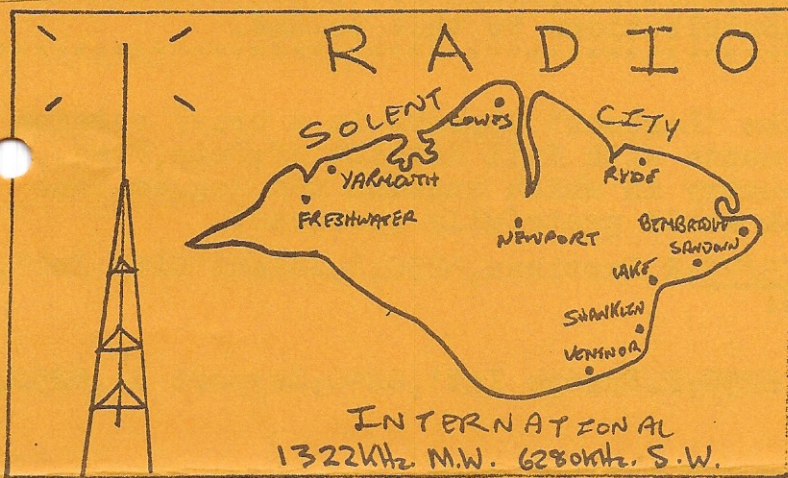 RADIO
SOLENT CITY
COWES
YARMOUTH
RYDE
FRESHWATER
NEWPORT
BEMBRIDGE
SANDOWN
LAKE
SHANKLIN
VENTNOR
INTERNATIONAL
1322KHz. M.W. 6280KHz. S.W.